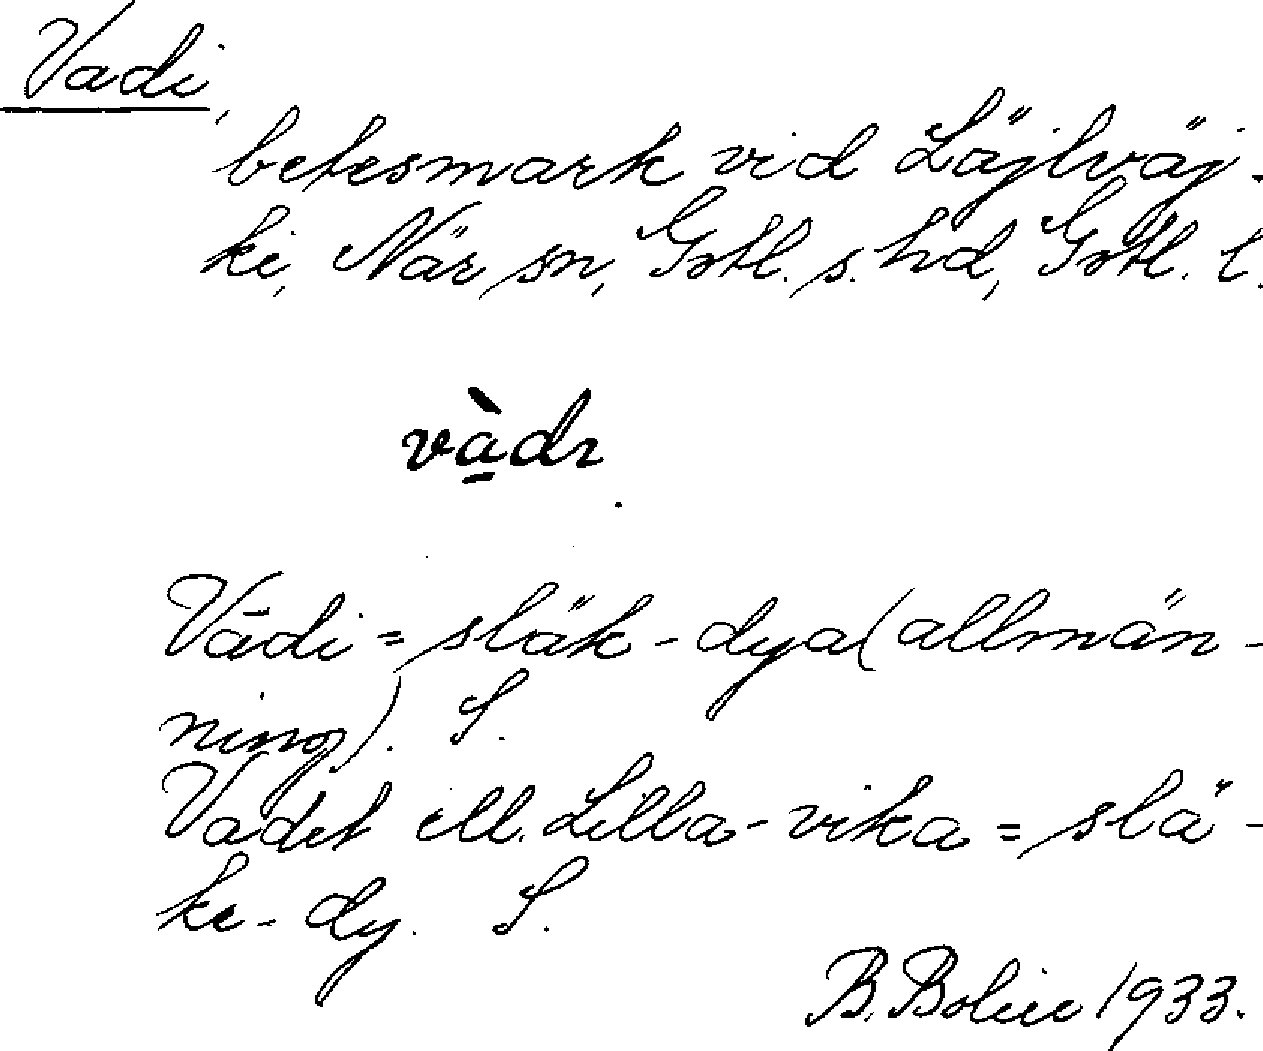 Vadi,
betesmark vid Läjlväj-
ki, När sn, Gotl. s. hd, Gotl. l.
vàdı
Vādi = släk-dya (allmän-
ning). S.
Vadet ell. Lilla-vika = slä-
ke-dy. S.
B. Bolin 1933.